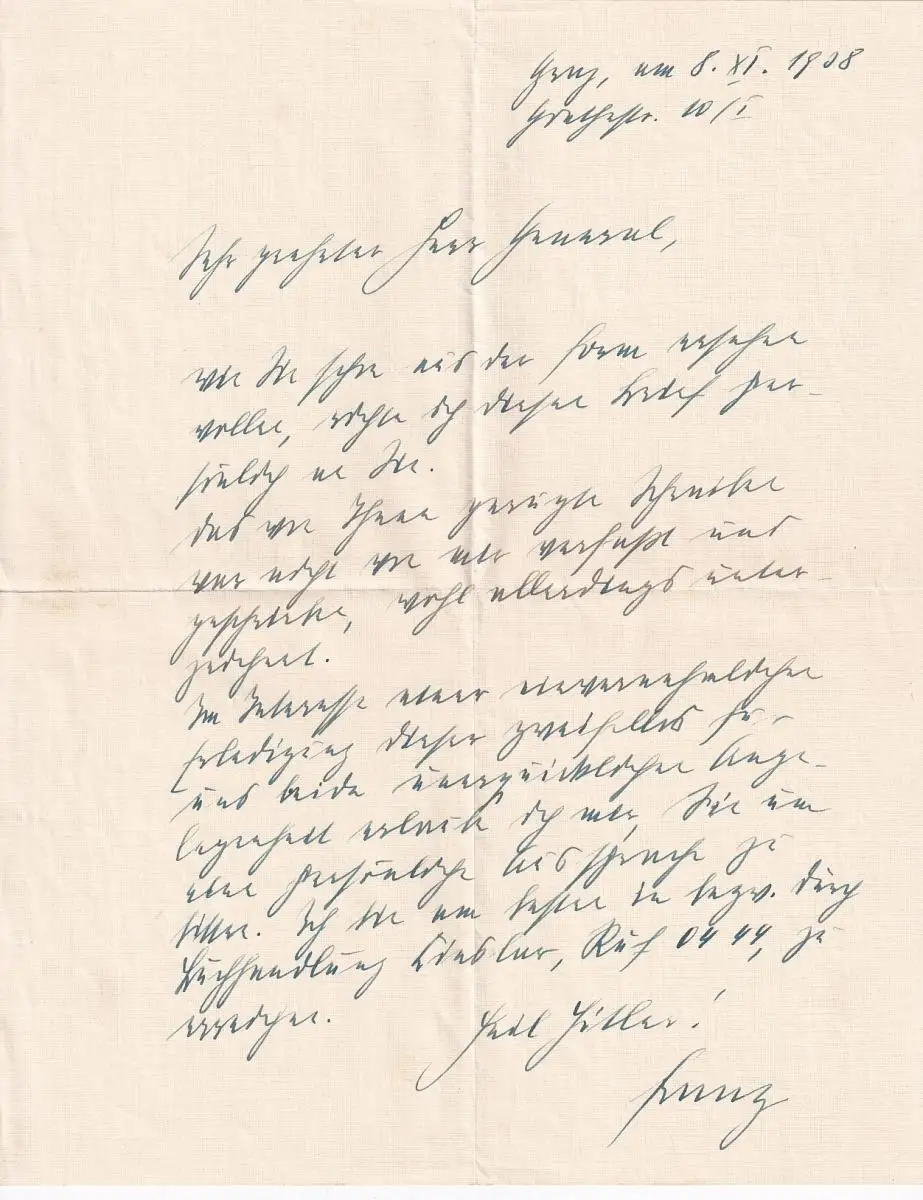 Graz, am 8. XI. 1938
Goethestr. 10/I
Sehr geehrter Herr General,
wie Sie schon aus der Form ersehen
wollen, richte ich diesen Brief per-
sönlich an Sie.
Das von Ihnen gerügte Schreiben
war nicht von mir verfaßt und
geschrieben, wohl allerdings unter-
zeichnet.
Im Interesse einer einvernehmlichen
Erledigung dieser zweifellos für
uns beide unerquicklichen Ange-
legenheit erlaube ich mir, Sie um
eine persönliche Aussprache zu
bitten. Ich bin am besten in bezw. durch
Buchhandlung Kienlar, Ruf 04 44, zu
erreichen.
Heil Hitler!
Franz